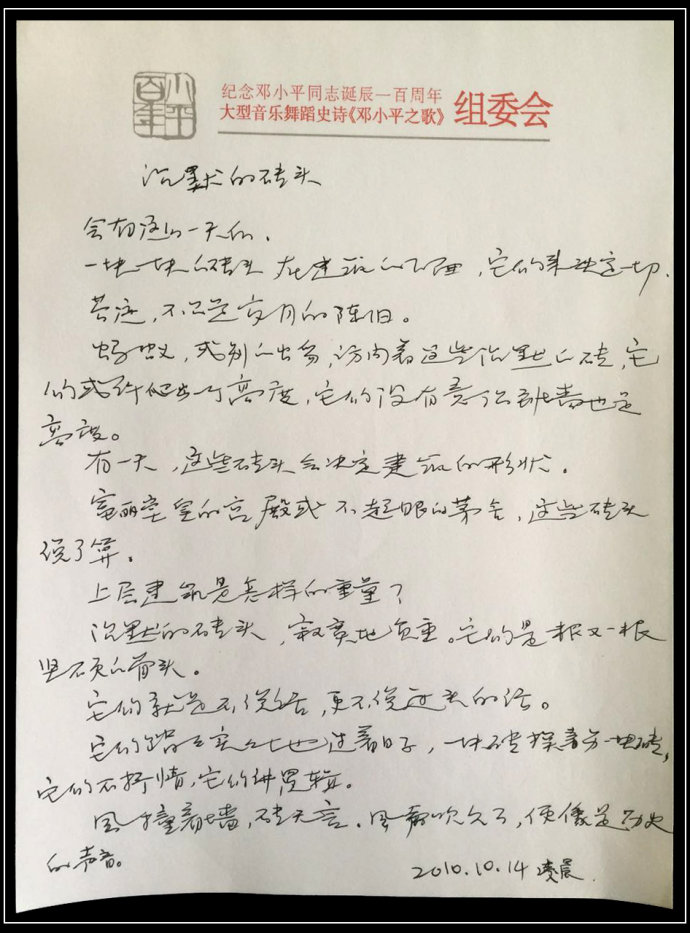 小平
百年
纪念邓小平同志诞辰一百周年
大型音乐舞蹈史诗《邓小平之歌》
组委会
沉默的砖头
会有这么一天的，
一块一块的砖头在建筑的下面，它们来决定一切.
苔迹，不只是岁月的陈旧。
蚂蚁，或别的出身，访问着这些沉默的砖，它
们或许爬出一个高度，它们没有意识到墙也是
高度。
有一天，这些砖头会决定建筑的形状.
富丽堂皇的宫殿或不起眼的茅舍，这些砖头
说了算.
上层建筑是怎样的重量？
沉默的砖头，寂寞地负重。它们是一根又一根
坚硬的骨头。
它们就是不说话，更不说过头的话。
它们踏踏实实地过着日子，一块砖挨着另一块砖，
它们不抒情，它们讲逻辑。
风撞着墙，砖无言.风声吹久了，便像是历史
的声音。
2010.10.14 凌晨.